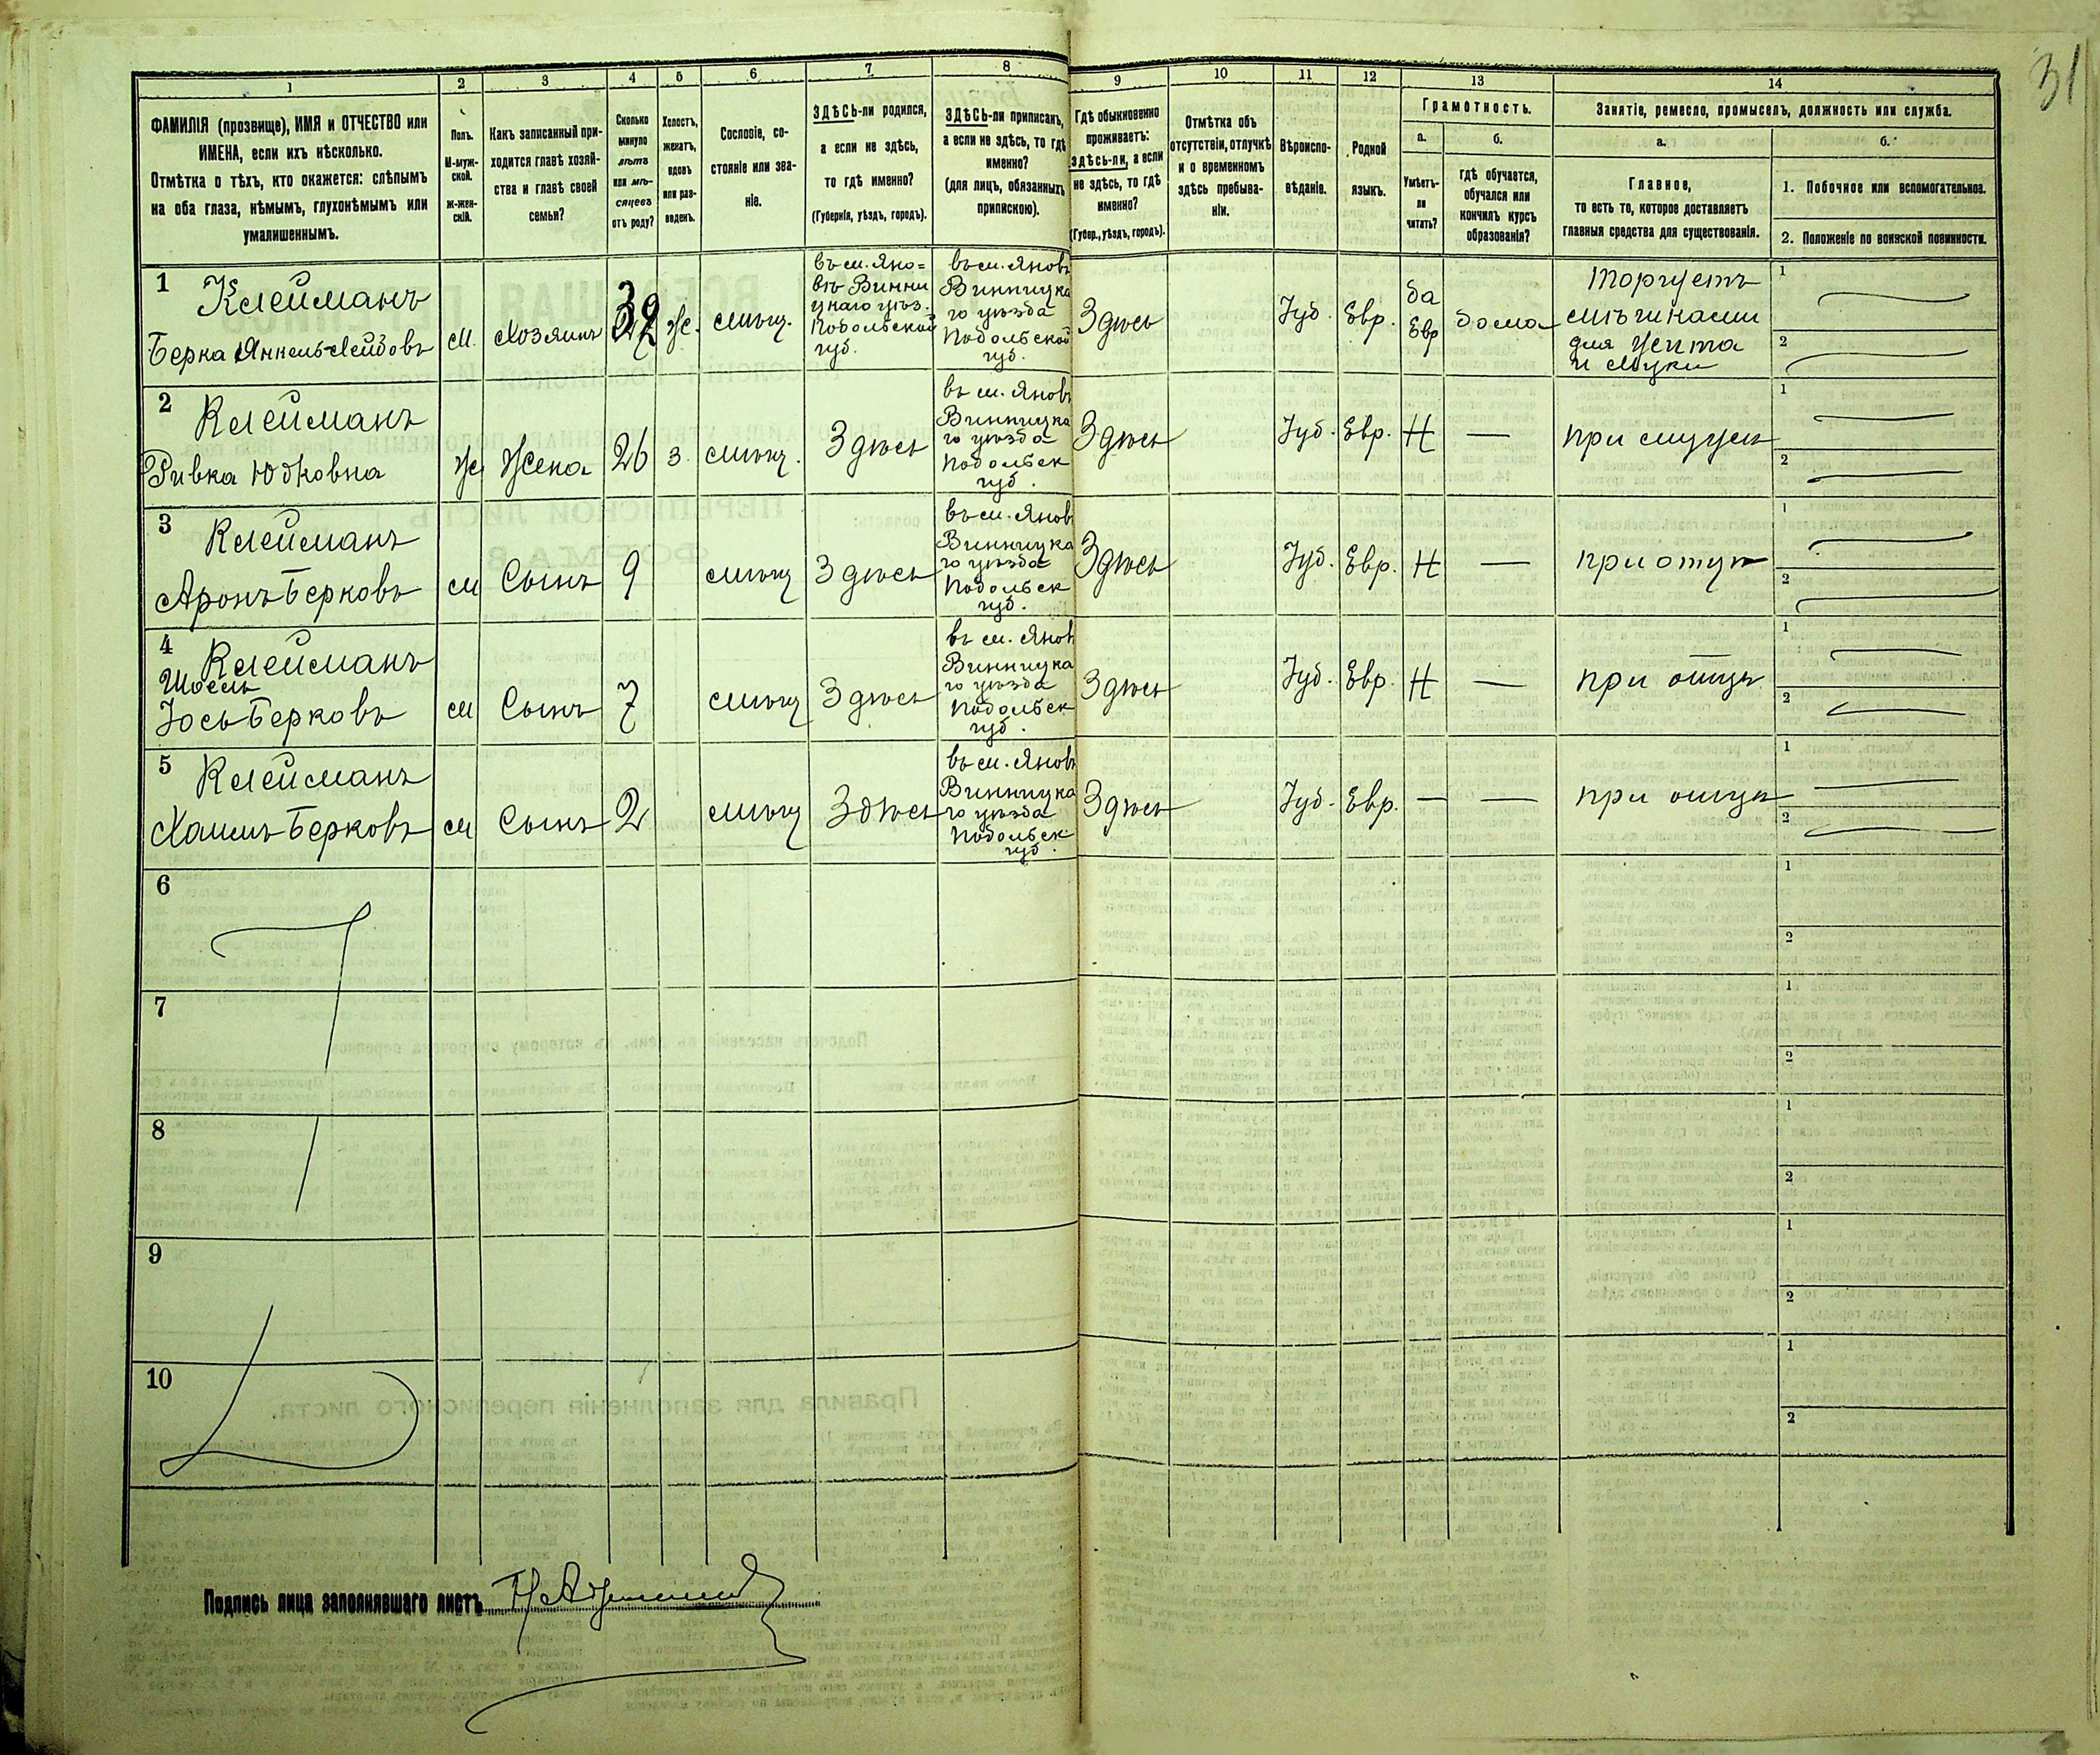 31
1 2 3 4 5 6 7 8 9 10 11 12 13 14
ФАМИЛІЯ (прозвище), ИМЯ и ОТЧЕСТВО или
ИМЕНА, если ихъ нѣсколько.
Отмѣтка о тѣхъ, кто окажется: слѣпымъ
на оба глаза, нѣмымъ, глухонѣмымъ или
умалишеннымъ.
Полъ.
М-муж-
ской.
Ж-жен-
скій.
Какъ записанный при-
ходится главѣ хозяй-
ства и главѣ своей
семьи?
Сколько
минуло
лѣтъ
или мѣ-
сяцевъ
отъ роду?
Холостъ,
женатъ,
вдовъ
или раз-
веденъ.
Сословіе, со-
стояніе или зва-
ніе.
ЗДѢСЬ-ли родился,
а если не здѣсь,
то гдѣ именно?
(Губернія, уѣздъ, городъ).
ЗДѢСЬ-ли приписанъ,
а если не здѣсь, то гдѣ
именно?
(для лицъ, обязанныхъ
припискою).
Гдѣ обыкновенно
проживаетъ:
здѣсь-ли, а если
не здѣсь, то гдѣ
именно?
(Губер., уѣздъ, городъ).
Отмѣтка объ
отсутствіи, отлучкѣ
и о временномъ
здѣсь пребыва-
ніи.
Вѣроиспо-
вѣданіе.
Родной
языкъ.
Грамотность.
а.
Умѣетъ-
ли
читать?
б.
гдѣ обучается,
обучался или
кончилъ курсъ
образованія?
Занятіе, ремесло, промыселъ, должность или служба.
а.
Главное,
то есть то, которое доставляетъ
главныя средства для существованія.
б.
1. Побочное или вспомогательное.
2. Положеніе по воинской повинности.
1
Клейманъ
Берка Янкель-Лейбовъ
м.
Хозяинъ
Же.
мѣщ.
въ м. Яно=
вѣ Винни
цкаго уѣз.
Подольской
губ.
въ м. Яновѣ
Винницка
го уѣзда
Подольской
губ.
Здѣсь
Іуд.
Евр.
да
Евр
дома
Торгуетъ
для
и муки
1
2
2
Клейманъ
Ривка Юдковна
Ж
Жена
26
З.
мѣщ.
Здѣсь
въ м. Яновѣ
Винницка
го уѣзда
Подольск
губ.
Здѣсь
Іуд.
Евр.
Н
—
при мужѣ
1
2
3
Клейманъ
Аронъ Берковъ
м
Сынъ
9
мѣщ
Здѣсь
въ м. Яновѣ
Винницка
го уѣзда
Подольск
губ.
Здѣсь
Іуд.
Евр.
Н
—
при отцѣ
1
2
4
Клейманъ
Іось Берковъ
м
Сынъ
7
мѣщ
Здѣсь
въ м. Яновѣ
Винницка
го уѣзда
Подольск
губ.
Здѣсь
Іуд.
Евр.
Н
—
при отцѣ
1
2
5
Клейманъ
Хаимъ Берковъ
м
Сынъ
2
мѣщ
Здѣсь
въ м. Яновѣ
Винницка
го уѣзда
Подольск
губ.
Здѣсь
Іуд.
Евр.
—
—
при отцѣ
1
2
6
1
2
7
1
2
8
1
2
9
1
2
10
1
2
Подпись лица заполнявшаго листъ